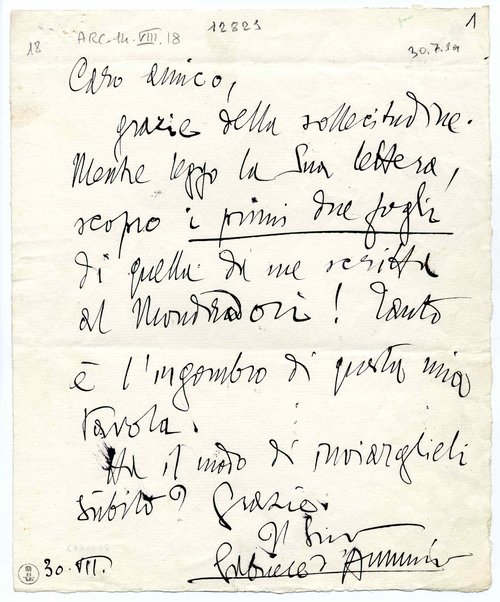 12823
1
18
ARC.14.VIII.18
30.7.
Caro amico,
grazie della sollecitudine.
Mentre leggo la Sua lettera,
scopro i primi due fogli
di quella da me scritta
al Mondadori! Tanto
è l'ingombro di questa mia
tavola.
Ha il modo di inviarglieli
subito? Grazie.
Il Suo
Gabriele d'Annunzio
30.VII.